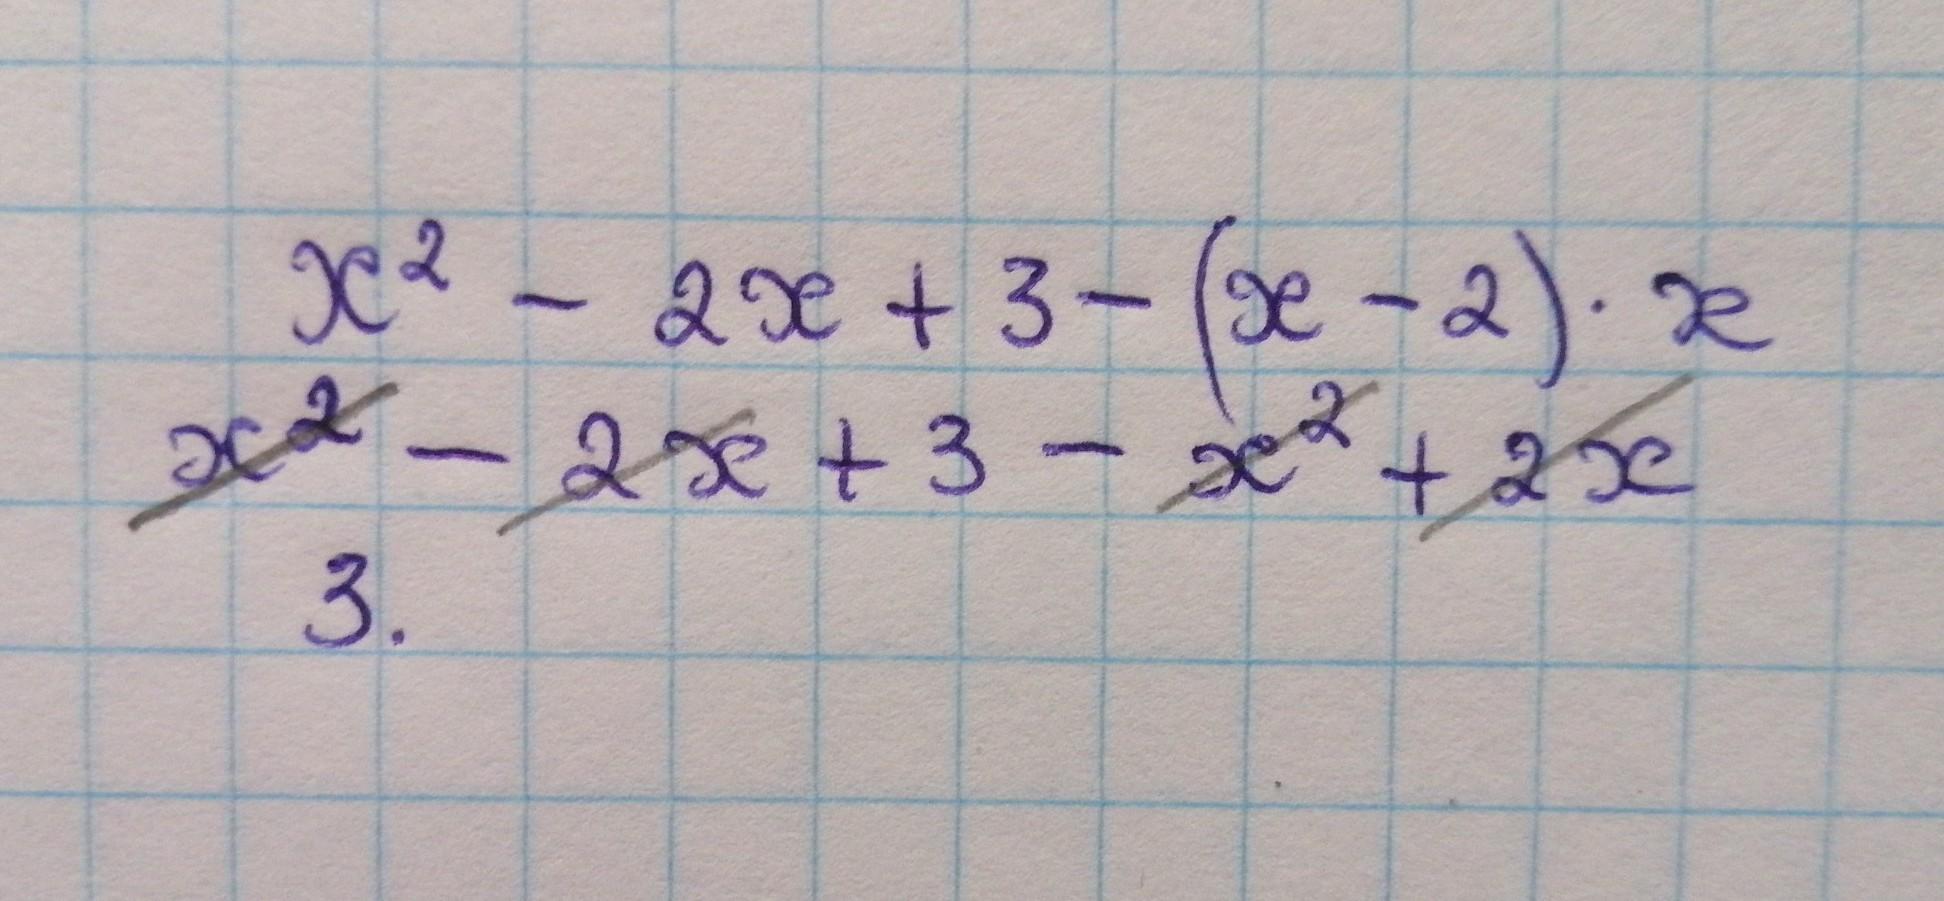 x² - 2x + 3 - (x - 2) · x
x² - 2x + 3 - x² + 2x
3.